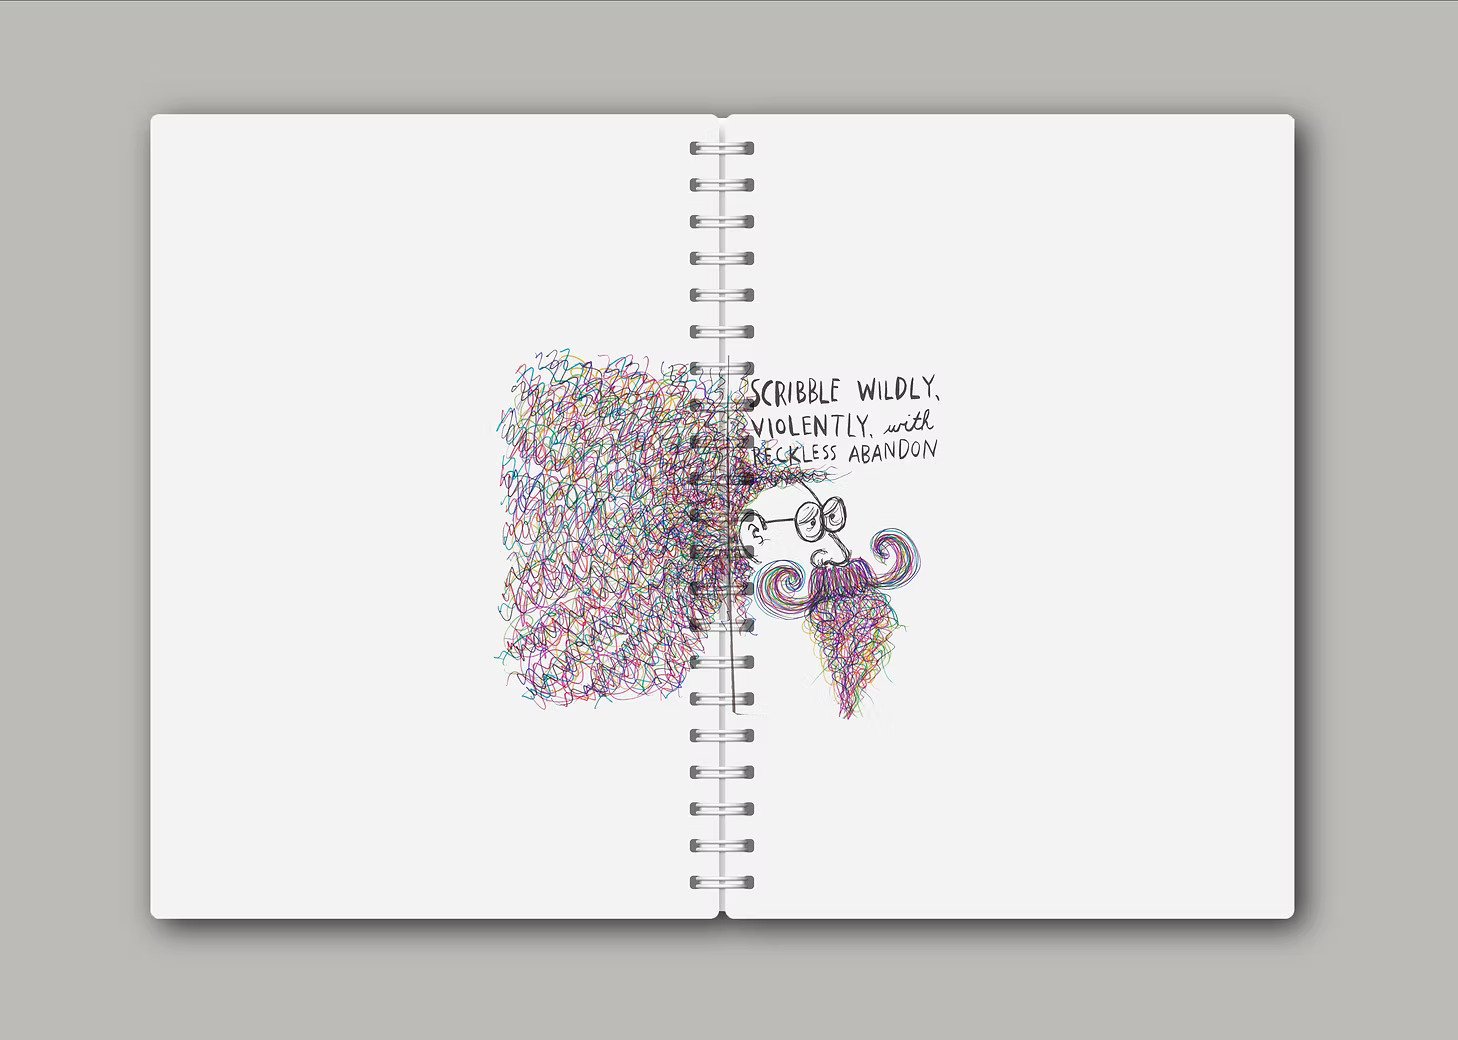 SCRIBBLE WILDLY,
VIOLENTLY, with
RECKLESS ABANDON